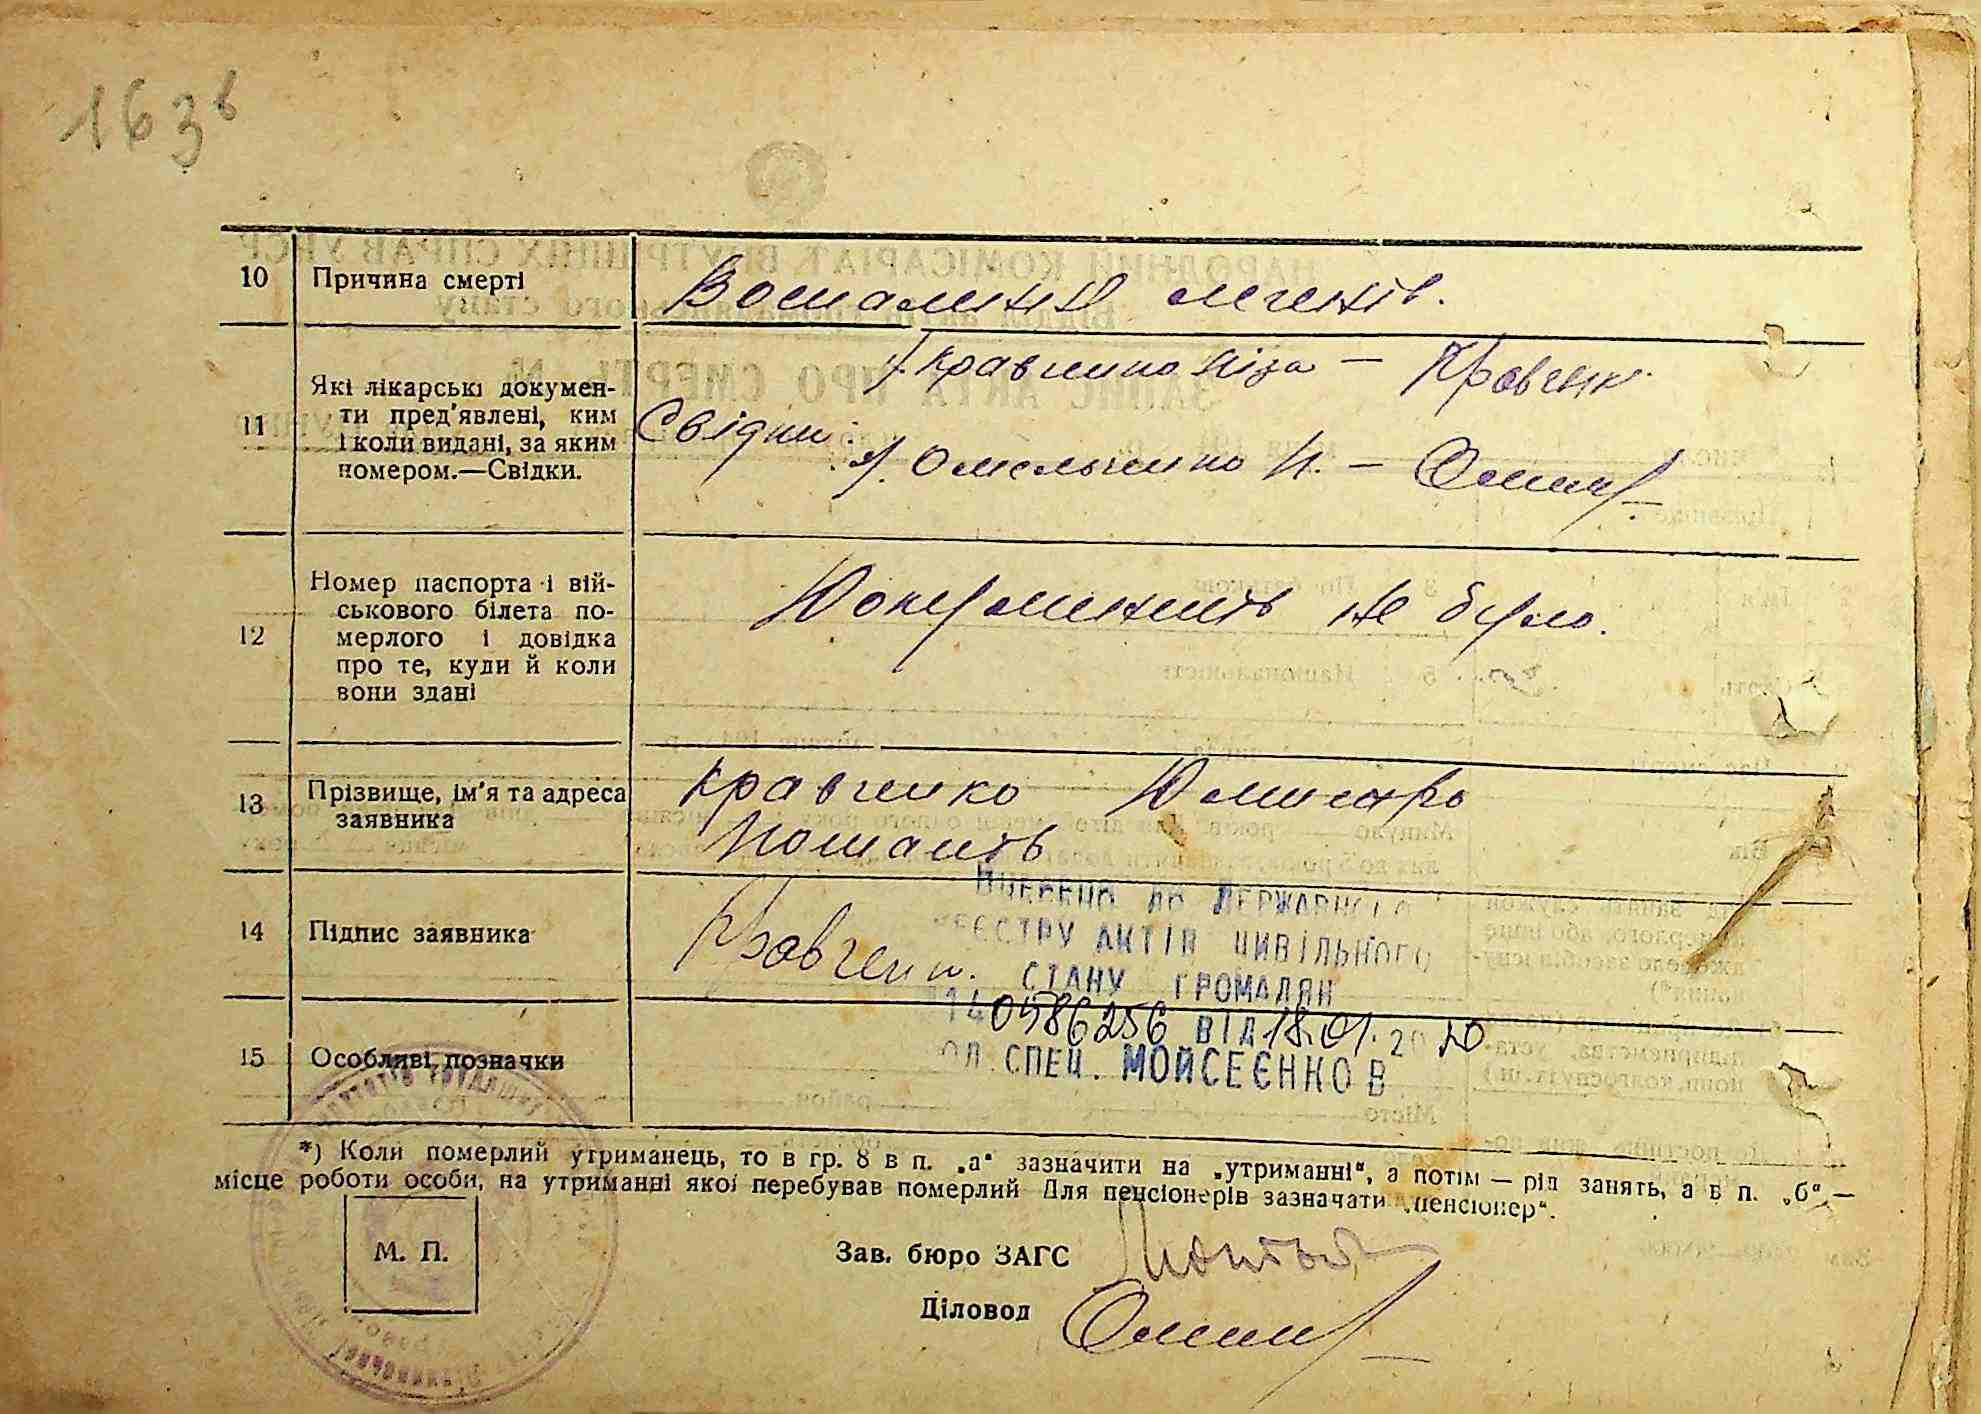 163 в
10 Причина смерті
Воспалення легенів.
11 Які лікарські докумен-
ти пред'явлені, ким
і коли видані, за яким
номером.—Свідки.
1. Кравченко Ніза —
Свідки:
2. Омельченко Н. —
12 Номер паспорта і вій-
ськового білета по-
мерлого і довідка
про те, куди й коли
вони здані
Документів не було.
13 Прізвище, ім'я та адреса
заявника
Кравченко Дмитро
14 Підпис заявника
Кравченко.
Внесено до Державного
реєстру актів цивільного
стану громадян
0586256 від 18.01.2020
СПЕЦ. МОЙСЕЄНКО В
15 Особливі позначки
*) Коли померлий утриманець, то в гр. 8 в п. „а“ зазначити на „утриманні“, а потім — рід занять, а в п. „б“ —
місце роботи особи, на утриманні якої перебував померлий Для пенсіонерів зазначати „пенсіонер“.
М. П.
Зав. бюро ЗАГС
Діловод